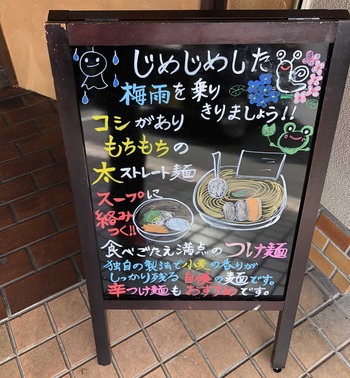 じめじめした
梅雨を乗り
きりましょう!!
コシがあり
もちもちの
太ストレート麺
スープに
絡み
つく!!
食べごたえ満点のつけ麺
独自の製法で小麦の香りが
しっかり残る自慢の麺です。
辛つけ麺もおすすめです。